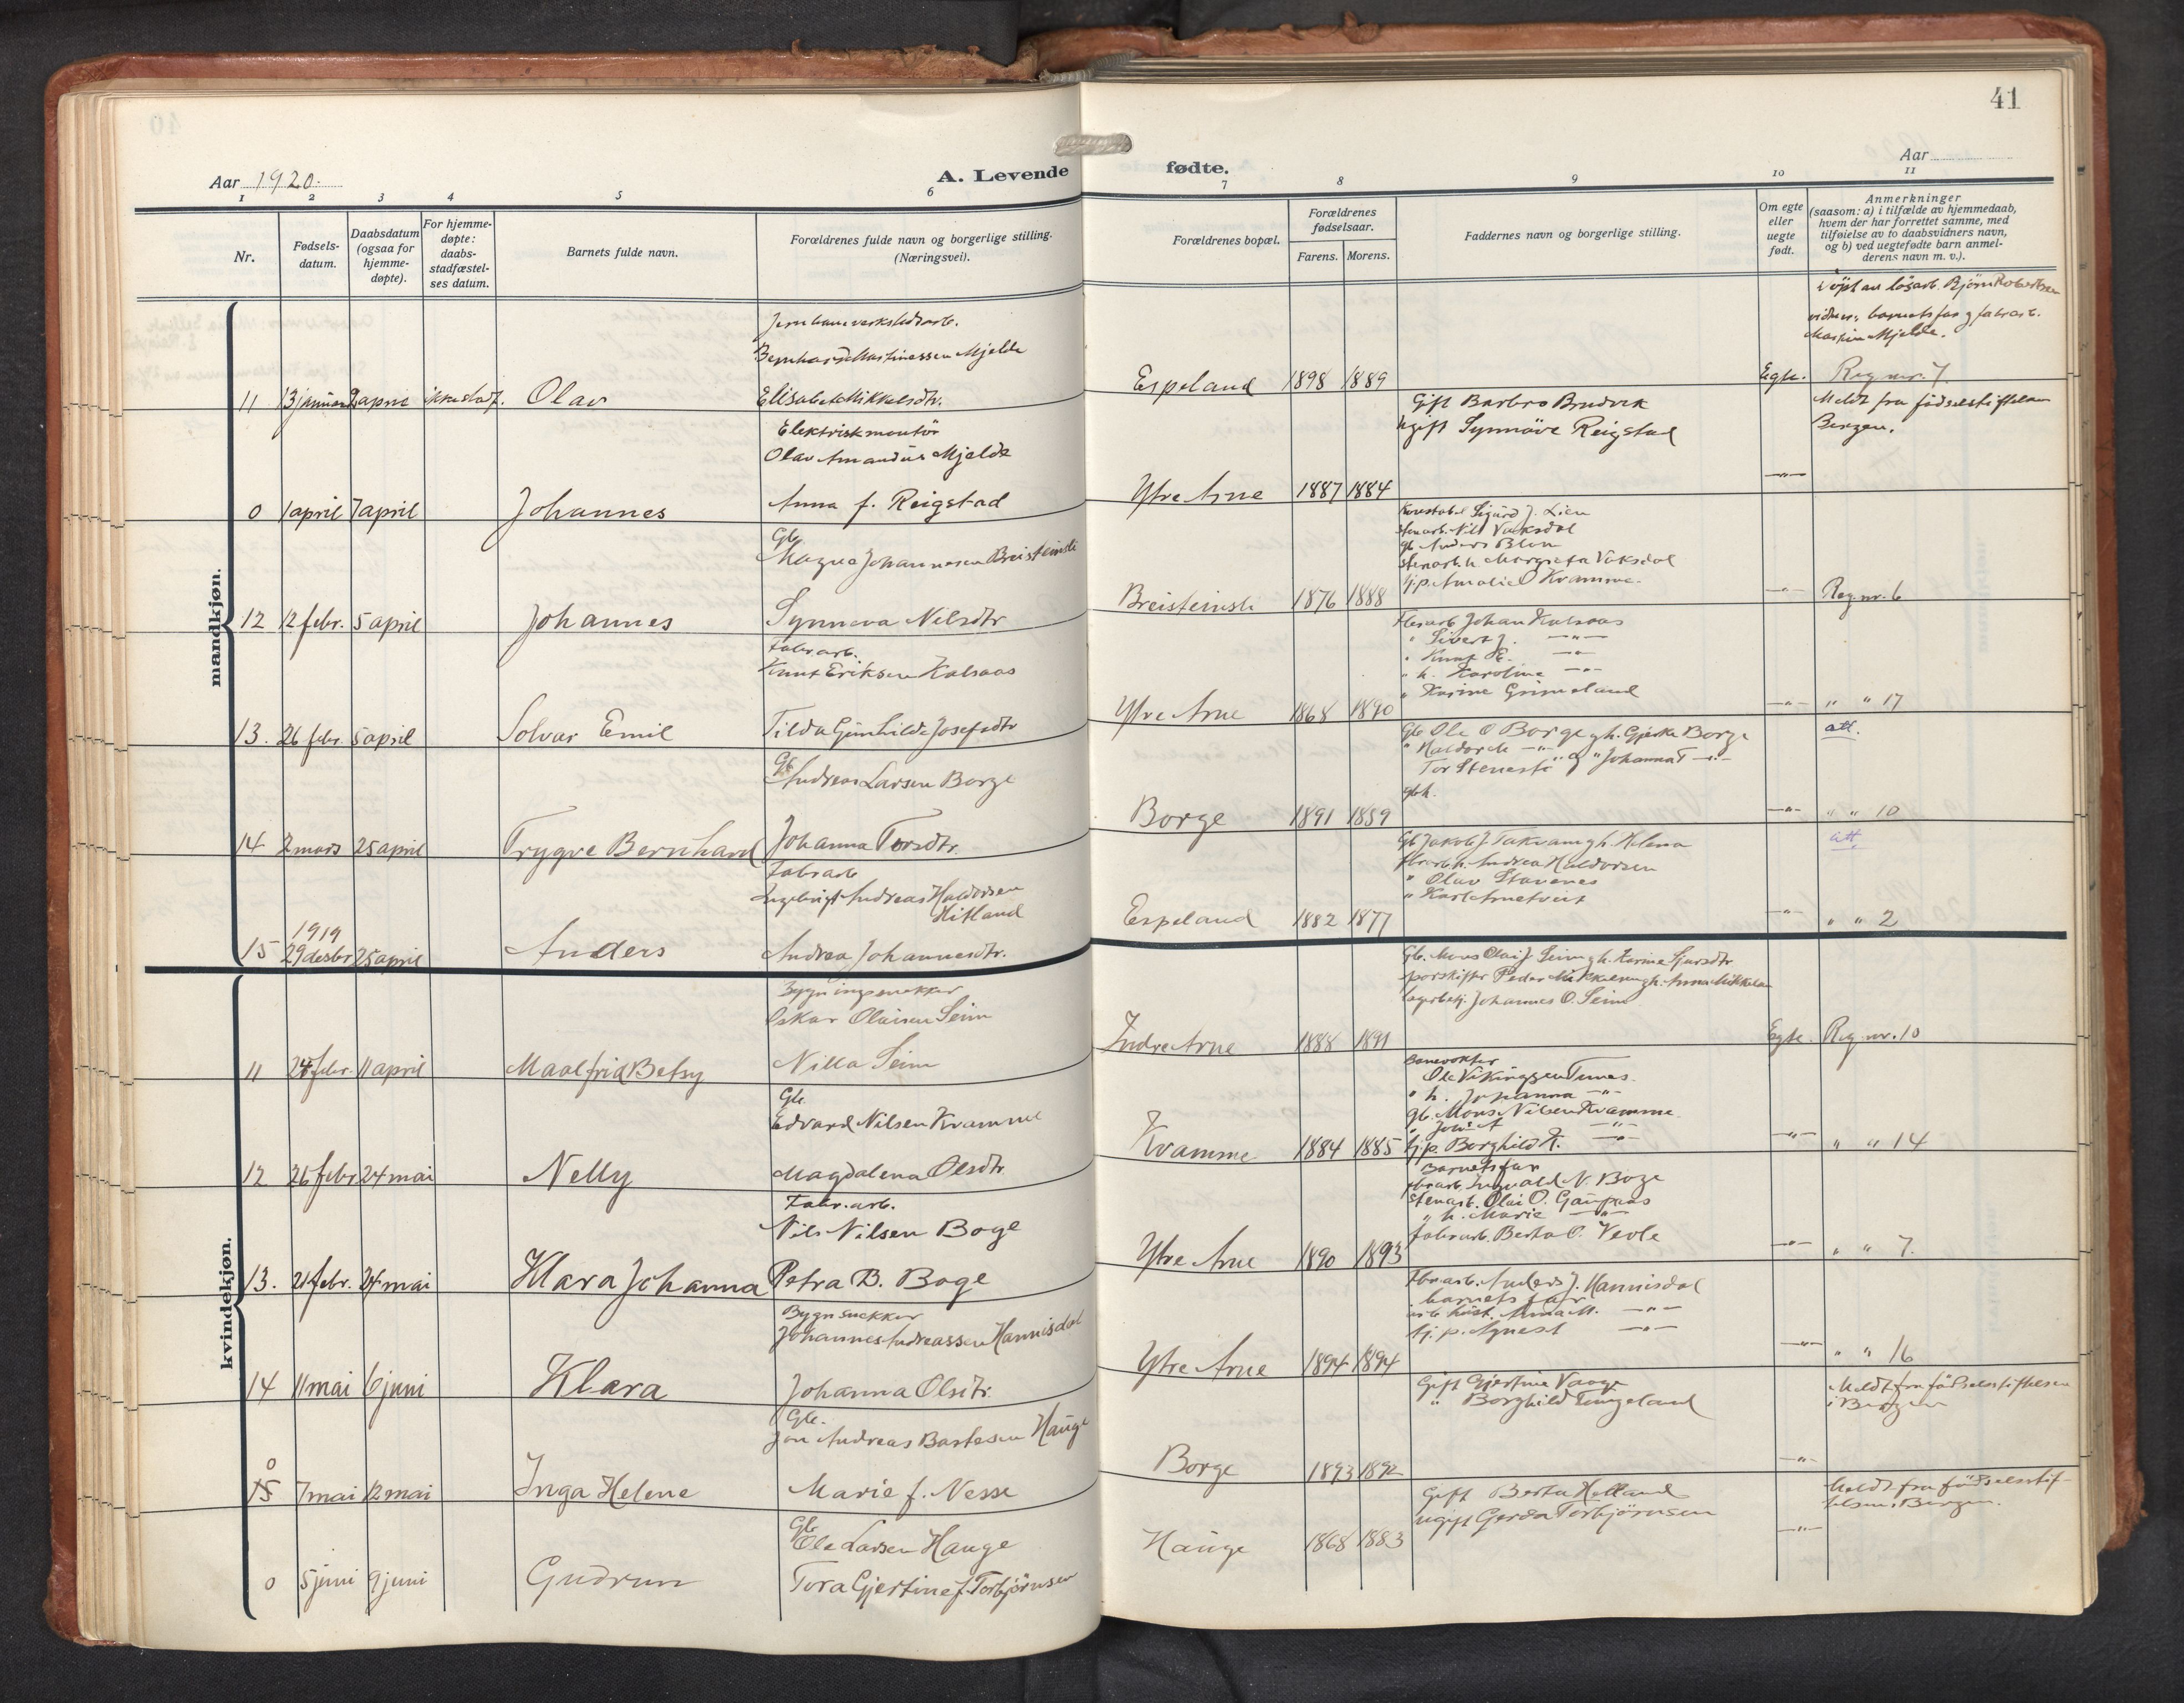 41
Aar 1920.
A. Levende
fødte.
Aar
1 2 3 4 5 6 7 8 9 10 11
Nr.
Fødsels-
datum.
Daabsdatum
(ogsaa for
hjemme-
døpte).
For hjemme-
døpte:
daabs-
stadfæstel-
ses datum.
Barnets fulde navn.
Forældrenes fulde navn og borgerlige stilling.
(Næringsvei).
Forældrenes bopæl.
Forældrenes
fødselsaar.
Farens. Morens.
Faddernes navn og borgerlige stilling.
Om egte
eller
uegte
født.
Anmerkninger
(saasom: a) i tilfælde av hjemmedaab,
hvem der har forrettet samme, med
tilføielse av to daabsvidners navn,
og b) ved uegtefødte barn anmel-
derens navn m. v.).
mandkjøn.
Jernbaneverkstedsarb.
Bernhard Martinessen Mjelde
11 13 januar 2 april ikke stadf. Olav Elisabet Mikkelsdtr.
Espeland 1898 1889
Egte.
Døpt av løsarb. Bjørn Robertsen
vidner: barnets far og fabrarb.
Martin Mjelde.
Reg. nr. 7.
Elektriskmontør
Olav Amandus Mjelde
0 1 april 7 april Johannes Anna f. Reigstad
Ytre Arne 1887 1884
Gift Barbro Brudvik
ugift Synnöve Reigstad
—"—
Meldt fra fødselsstiftelsen
Bergen.
Gb.
Magne Johannesen Breisteinsli
12 12 febr. 5 april Johannes Synneva Nilsdtr
Breisteinsli 1876 1888
Konstabel Sigurd J. Lien
stenarb. Nils Vaksdal
gb Anders Blom
stenarb. h. Margreta Vaksdal
tj.p. Amalie O Kvamme.
—"— Reg. nr. 6
Fabrarb.
Knut Eriksen Kalsaas
13. 26 febr. 5 april Solvar Emil Tilda Gunhilde Josefsdtr
Ytre Arne 1868 1890
Fbrarb Johan Kalsaas
" Sivert J. —"—
" Knut E. —"—
" h. Karoline —"—
" Karine Grimeland
—"— " " 17
Gb.
Andreas Larsen Borge
14 2 mars 25 april Trygve Bernhard Johanna Torsdtr.
Borge 1891 1889
Gb Ole O Borge gh. Gjertine Borge
" Haldor M —"— & " Johanna T —"—
Tor Stenestø
gb h.
—"— att.
" " 10
Fabrarb
Engebrigt Andreas Haldorsen
Hitland
15 1919
29 desbr 25 april Anders Andrea Johannesdtr.
Espeland 1882 1877
Gb Jakob J Takvam gh. Helena
fbrarb h. Andrea Haldorsen
" Olav Stavenes
" Karl Arnetveit
—"— att.
" " 2
kvindekjøn.
Bygningssnekker
Oskar Olaisen Seim
11 24 febr. 11 april Maalfrid Betsy Nilla Seim
Indre Arne 1888 1891
Gb. Mons Olai J Seim gh. Karine Sjursdtr
sporskifter Peder Mikkelsen gh. Anna Mikkelsen
lagerbetj. Johannes O. Seim
Egte. Reg. nr. 10
Gb.
Edvard Nilsen Kvamme
12 26 febr 24 mai Nelly Magdalena Olsdtr.
Kvamme 1884 1885
Banevokter
Ole Vikingsen Tunes.
" h. Johanna —"—
gb. Mons Nilsen Kvamme
tj.p. Borghild K. —"—
—"— " " 14
Fabr.arb.
Nils Nilsen Boge
13. 21 febr. 24 mai Klara Johanna Petra B. Boge
Ytre Arne 1890 1893
Barnets far
fbrarb. Ingvald N. Boge
stenarb. Olai O. Gaupaas
" h. Marie —"—
fabrarb. Berta O. Vevle
—"— " " 7.
Bygn snekker
Johannes Andreassen Hannisdal
14 11 mai 6 juni Klara Johanna Olsdtr.
Ytre Arne 1894 1894
Fbrarb. Anders J. Hannisdal
barnets far
arb. hust. Anna M. —"—
tj. p. Agnes A —"—
—"— " " 16
Gb.
Jon Andreas Bastesen Hauge
0
15 7 mai 12 mai Inga Helene Marie f. Nesse
Borge 1893 1892
Gift Gjertine Vaage
" Borghild Tungeland
—"—
Meldt fra fødselsstiftelsen
i Bergen
Gb
Ole Larsen Hauge
0 5 juni 9 juni Gudrun Tora Gjertine f. Torbjørnsen
Hauge 1868 1883
Gift Berta Helland
ugift Gerda Torbjørnsen
—"—
Meldt fra fødselsstif-
telsen i Bergen.